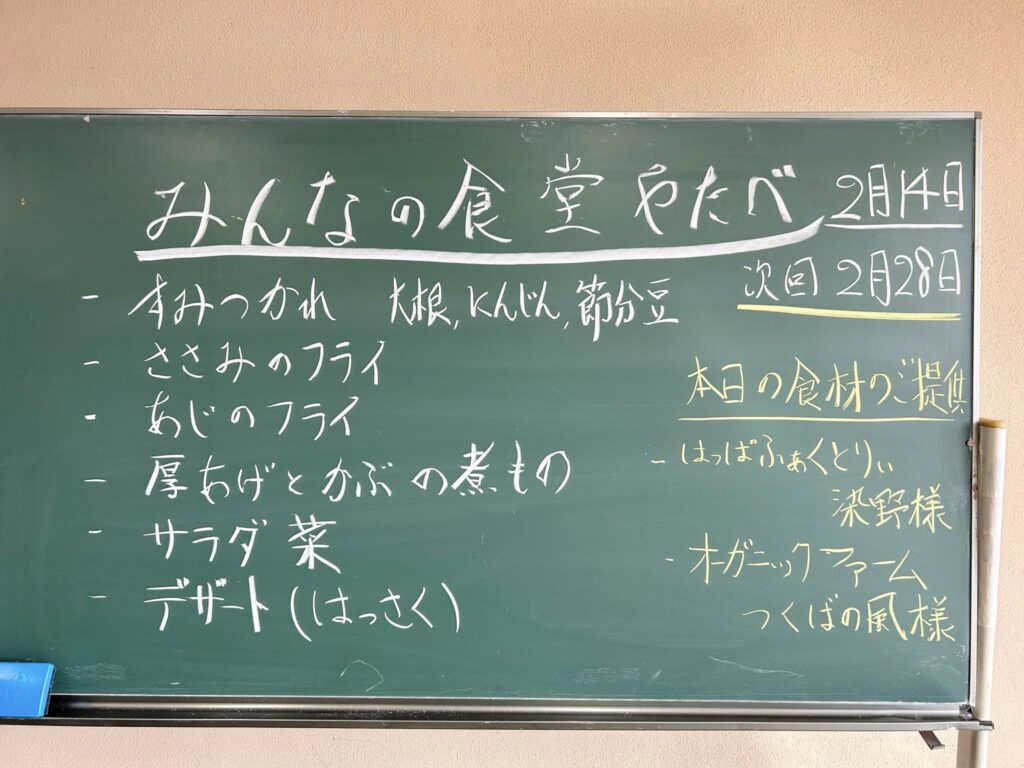 みんなの食堂やたべ 2月14日
次回 2月28日
- すみつかれ 大根,にんじん,節分豆
- ささみのフライ
- あじのフライ
- 厚あげとかぶの煮もの
- サラダ菜
- デザート(はっさく)
本日の食材のご提供
- はっぱふぁくとりぃ
染野様
- オーガニックファーム
つくばの風様